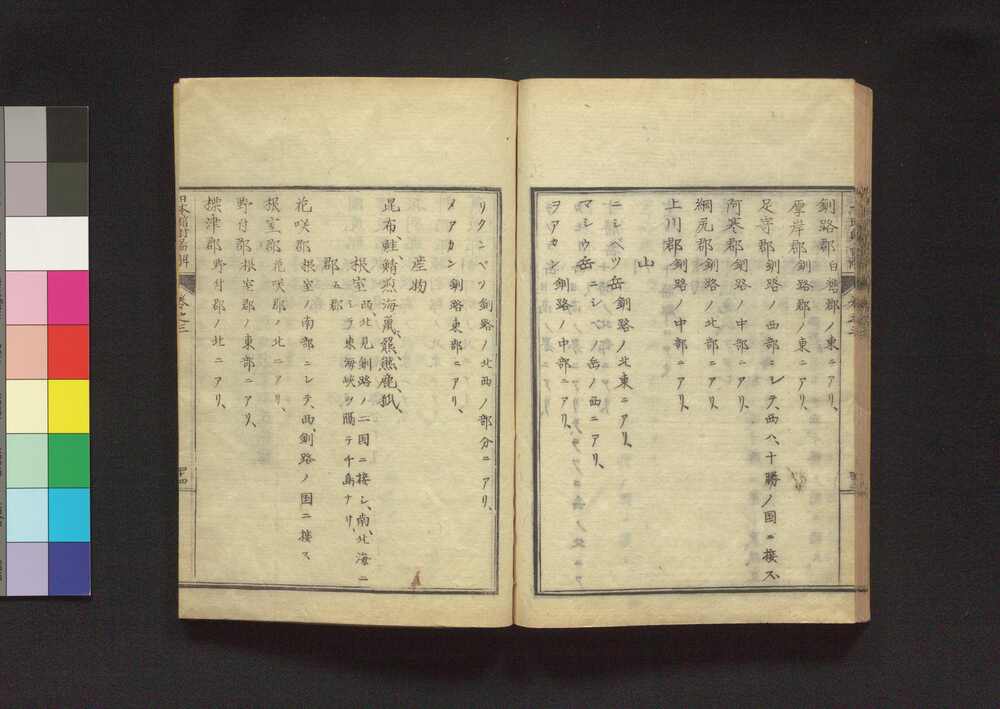 釧路郡白糠郡ノ東ニアリ、
厚岸郡釧路郡ノ東ニアリ、
足寄郡釧路ノ西部ニシテ、西ハ、十勝ノ国ニ接ス、
阿寒郡釧路ノ中部ニアリ、
網尻郡釧路ノ北部ニアリ、
上川郡釧路ノ中部ニアリ、
山
ニシベツ岳釧路ノ北東ニアリ、
マシウ岳ニシベツ岳ノ西ニアリ、
ヲアカン釧路ノ中部ニアリ、
リクンベツ釧路ノ北西ノ部分ニアリ、
メアカン釧路東部ニアリ、
産物
昆布、鮭、鯡、煎海鼠、熊、鹿、
根室西、北見釧路ノ二国ニ接シ、南、北海ニ
シテ東海峡ヲ隔テ千島ナリ、
郡五郡
花咲郡根室ノ南部ニシテ、西、釧路ノ国ニ接ス
根室郡花咲郡ノ北ニアリ、
野付郡根室郡ノ東部ニアリ、
標津郡野付郡ノ北ニアリ、
巻之三
四十四